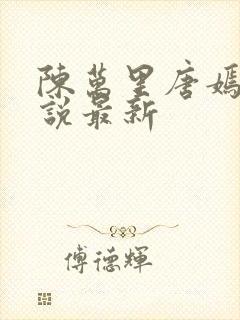 陳萬里唐嫣
說最新
傅德輝